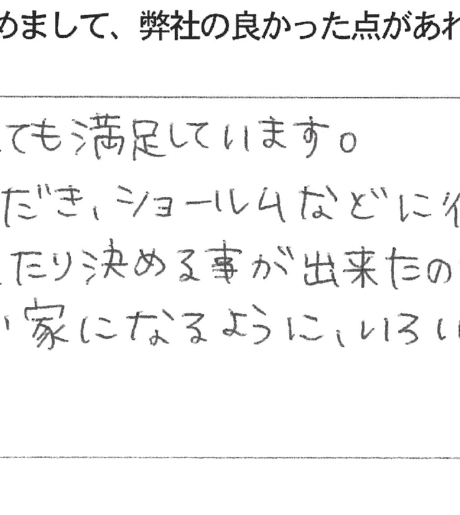 めまして、弊社の良かった点があれ
ても満足しています。
ただき、ショールムなどに行
したり決める事が出来たの
い家になるように、いろい